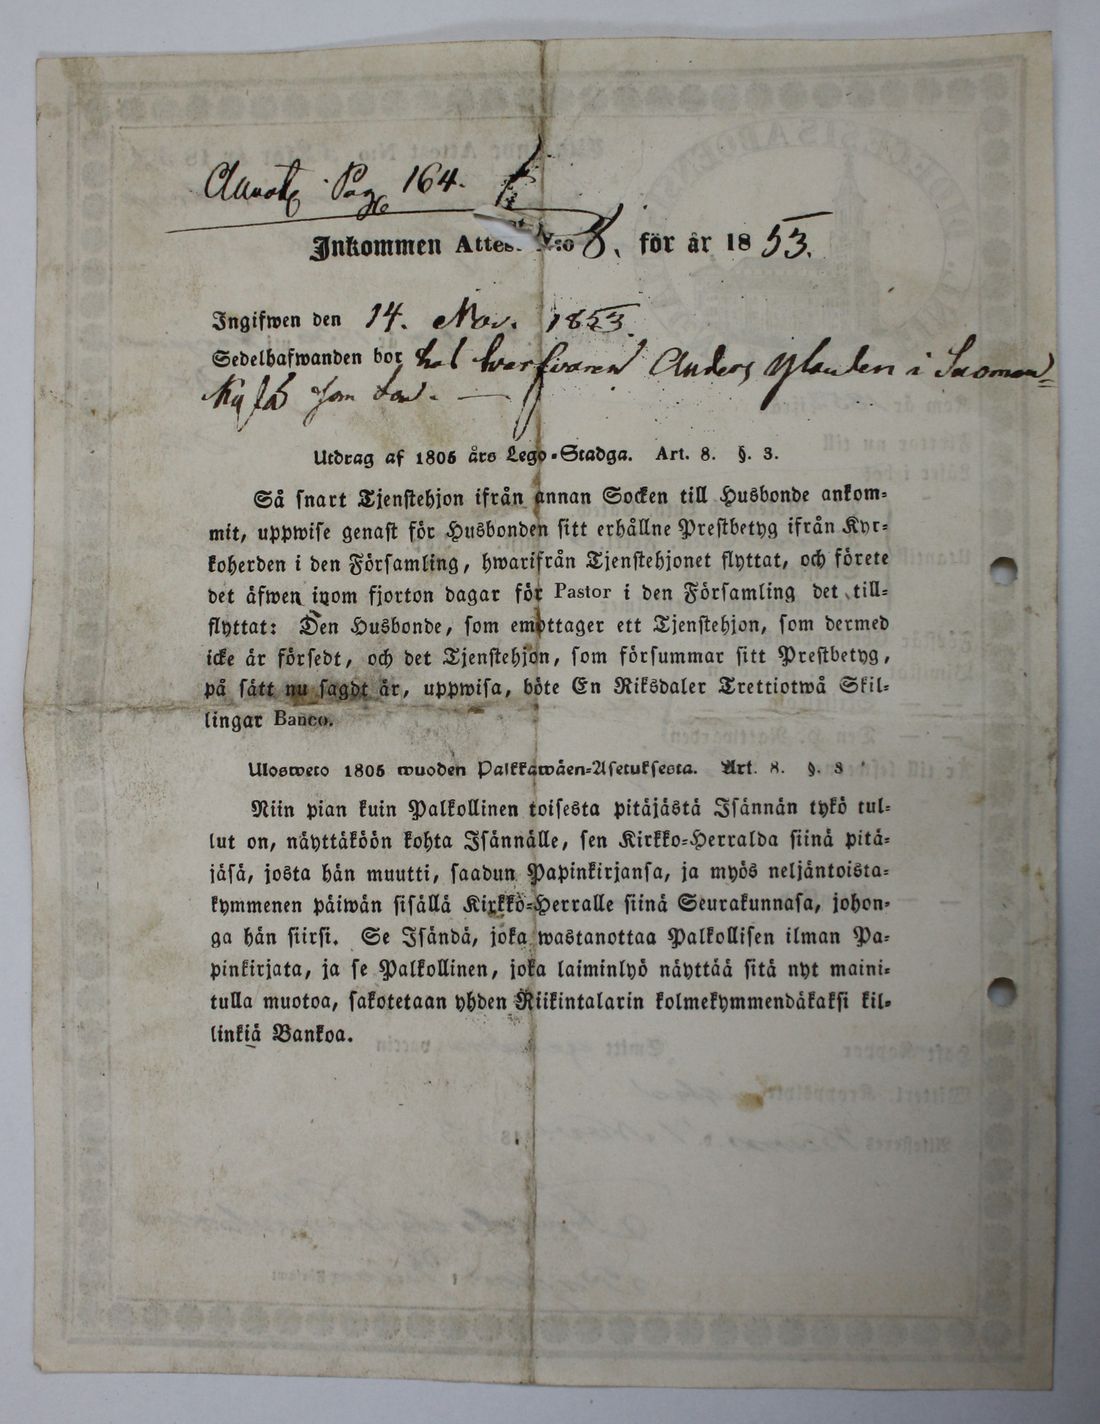 Pag 164.
Inkommen Attest N:o 8. för år 1853.
Ingifwen den 14. Nov. 1853.
Sedelhafwanden bor hos Anders i
som
Utdrag af 1805 års Lego-Stadga. Art. 8. §. 3.
Så snart Tjenstehjon ifrån annan Socken till Husbonde ankom-
mit, uppwise genast för Husbonden sitt erhållne Prestbetyg ifrån Kyr-
koherden i den Församling, hwarifrån Tjenstehjonet flyttat, och förete
det äfwen inom fjorton dagar för Pastor i den Församling det till-
flyttat: Den Husbonde, som emottager ett Tjenstehjon, som dermed
icke är försedt, och det Tjenstehjon, som försummar sitt Prestbetyg,
på sätt nu sagdt är, uppwisa, böte En Riksdaler Trettiotwå Skil-
lingar Banco.
Ulosweto 1805 wuoden Palkkawäen-Asetuksesta. Art. 8. §. 3
Niin pian kuin Palkollinen toisesta pitäjästä Isännän tykö tul-
lut on, näyttäköön kohta Isännälle, sen Kirkko-Herralda siinä pitä-
jäsä, josta hän muutti, saadun Papinkirjansa, ja myös neljäntoista-
kymmenen päiwän sisällä Kirkko-Herralle siinä Seurakunnasa, johon-
ga hän siirsi. Se Isändä, joka wastanottaa Palkollisen ilman Pa-
pinkirjata, ja se Palkollinen, joka laiminlyö näyttää sitä nyt maini-
tulla muotoa, sakotetaan yhden Riikintalarin kolmekymmendäkaksi kil-
linkiä Bankoa.